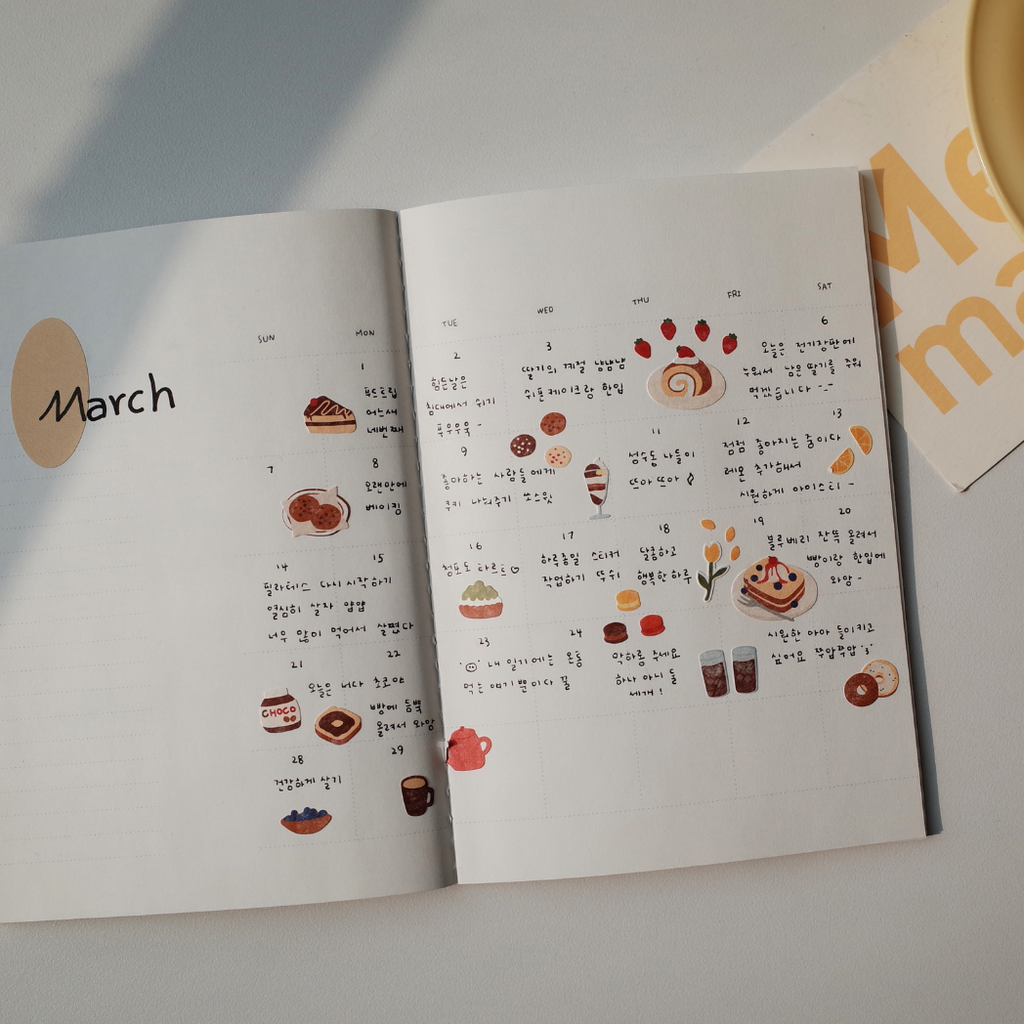 March
SUN
MON
TUE
WED
THU
FRI
SAT
1
푸드트립
어느새
네번째
2
힘든날은
침대에서 쉬기
푸우우욱 -
3
딸기의 계절 냠냠냠
쉬폰케이크랑 한입
6
오늘은 전기장판에
누워서 남은 딸기를 주워
먹겠습니다 -.-
7
8
오랜만에
베이킹
9
좋아하는 사람들에게
쿠키 나눠주기 쏘스윗
11
성수동 나들이
뜨아 뜨아
12
13
점점 좋아지는 중이다
레몬 추가해서
시원하게 아이스티 -
14
15
필라테스 다시 시작하기
열심히 살자 얍얍
너무 많이 먹어서 살쪘다
16
청포도 타르트♡
17
하루종일 스티커
작업하기 뚜쉬
18
달콤하고
행복한 하루
19
20
블루베리 잔뜩 올려서
빵이랑 한입에
와앙 -
21
22
오늘은 너다 초코야
빵에 듬뿍
올려서 와앙
CHOCO
23
내 일기에는 온통
먹는 얘기뿐이다 꿀
24
마카롱 주세요
하나 아니 둘
세개 !
시원한 아아 들이키고
싶어요 쭈압쭈압
28
건강하게 살기
29
Me
ma